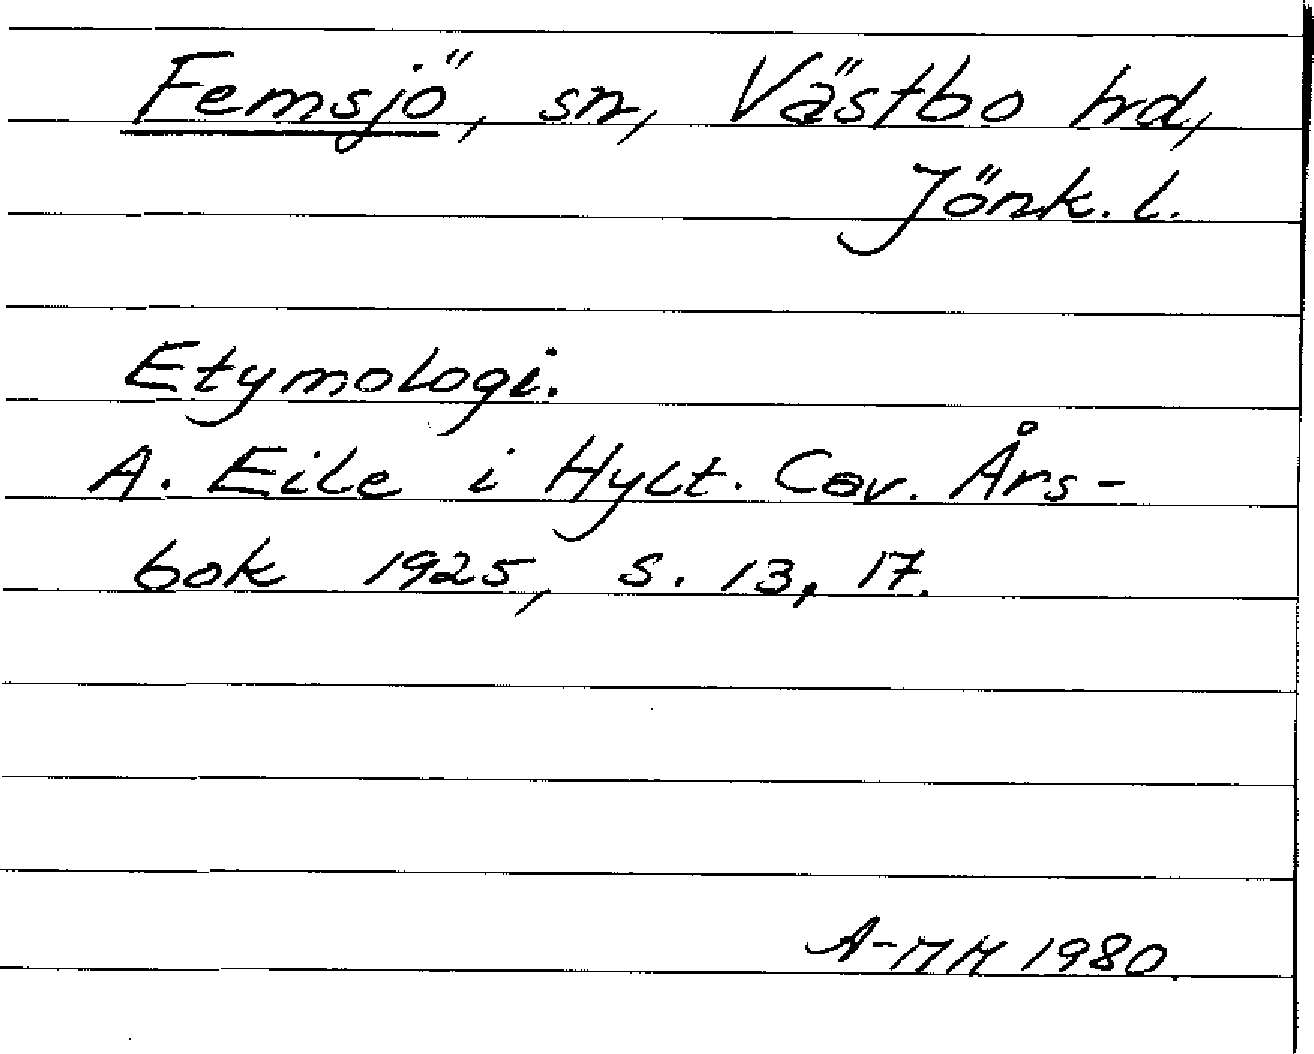 Femsjö, sn, Västbo hrd,
Jönk. l.
Etymologi.
A. Eile i Hylt. Cav. Års-
bok 1925, s. 13, 17.
A-MM 1980.